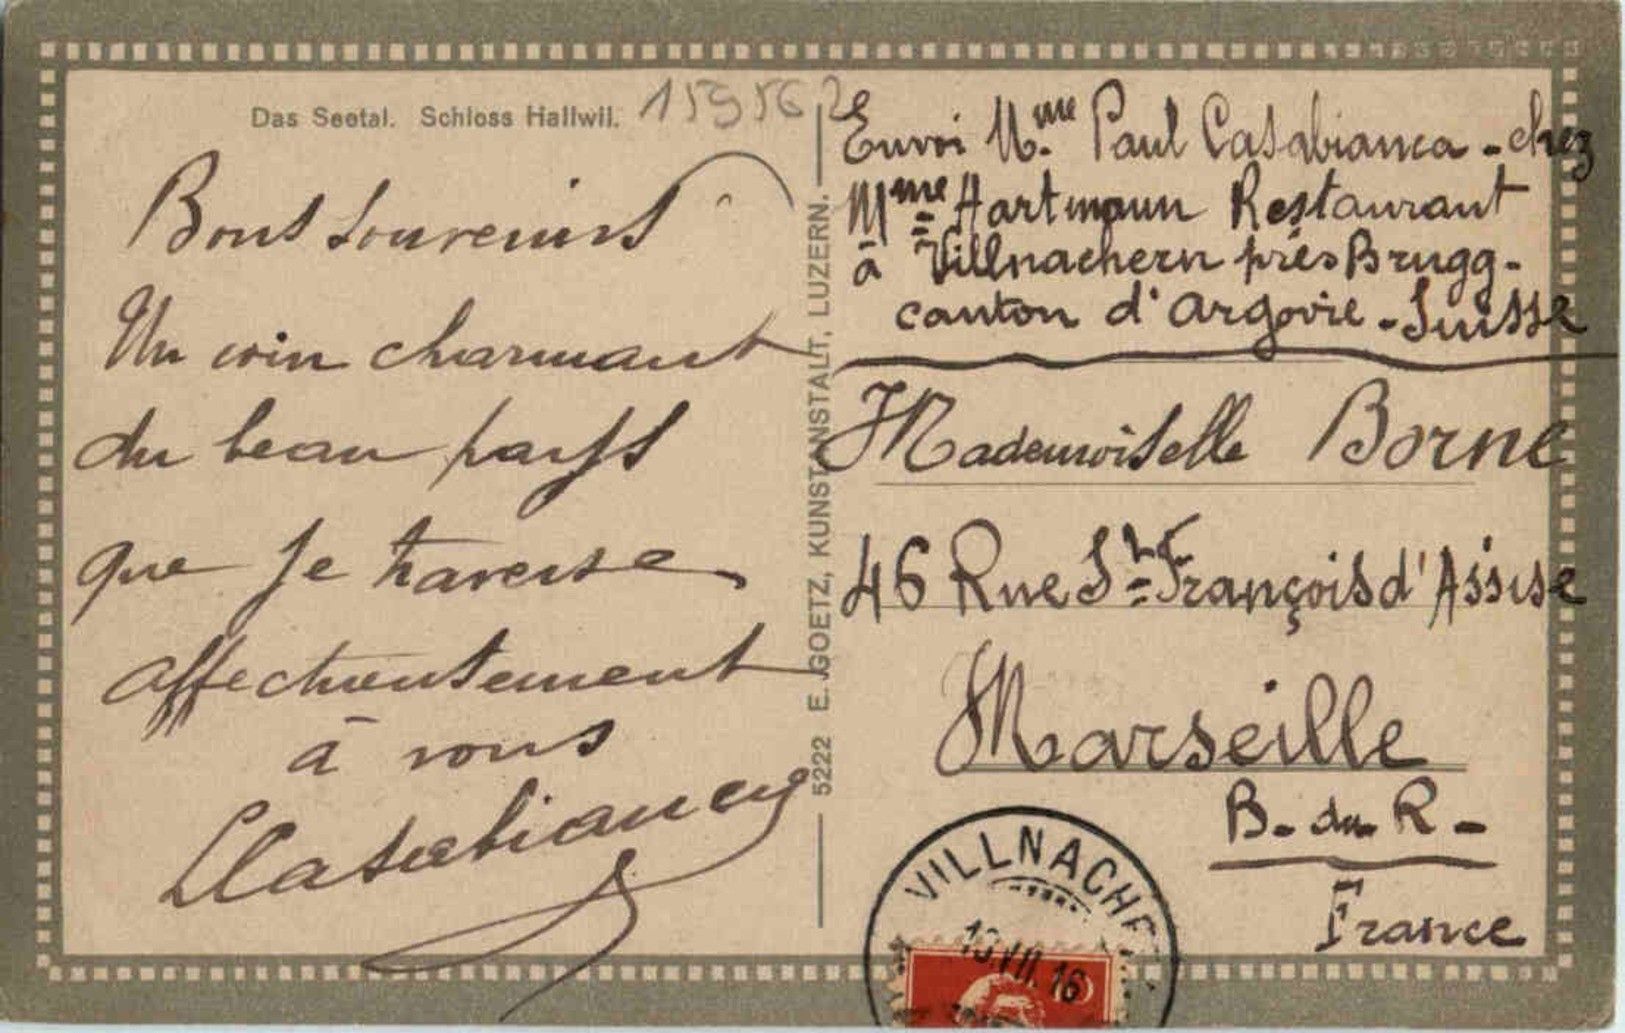 Das Seetal. Schloss Hallwil.
159562
Bons souvenirs
Un coin charmant
du beau pays
que je traverse
affectueusement
à vous
Casabianca
5222 E. GOETZ, KUNSTANSTALT, LUZERN.
Envoi Mme Paul Casabianca - chez
Mme Hartmann Restaurant
à Villnachern près Brugg -
canton d'Argovie - Suisse
Mademoiselle Borne
46 Rue St François d'Assise
Marseille
B. du R -
France
VILLNACHE
13 VII. 16